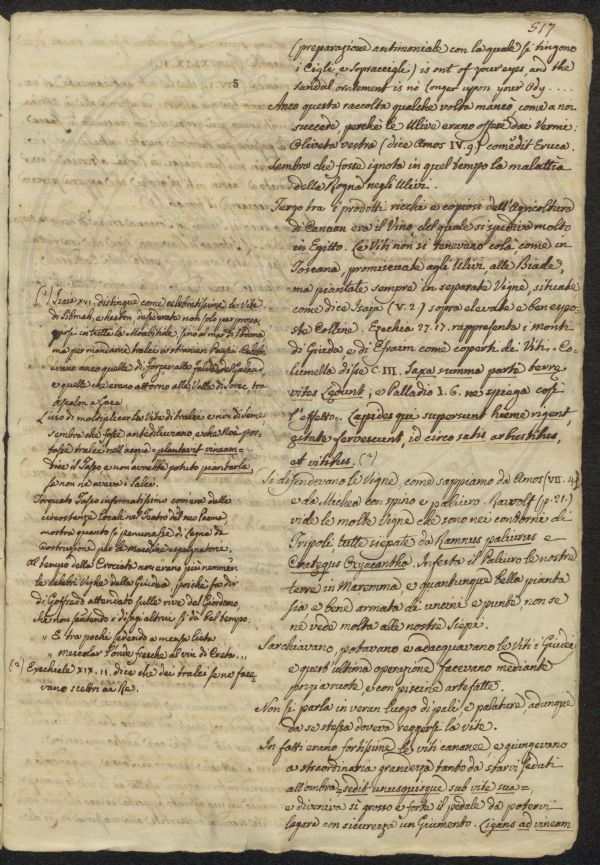 517
5
(preparazione antimoniale con la quale si tingono
i Cigli, e Sopraccigli) is out of your eyes, and the
sandal ornement is no longer upon your Ody....
Anco questa raccolta qualche volta mancò, come a noi
succede, perchè le Ulive erano offese dai Vermi:
Oliveta vestra (dice Amos IV. 9.) comedit Eruca.
Sembra che fosse ignota in quel tempo la malattia
della Rogna negli Ulivi.
Terzo tra i prodotti ricchi e copiosi dell'Agricoltura
di Canaan era il Vino, del quale si spediva molto
in Egitto. Le Viti non si tenevano colà, come in
Toscana, promiscuate agli Ulivi, alle Biade,
ma piantate sempre in separate Vigne, situate
come dice Isaja (V. 2.) sopra elevate e ben espo-
ste Colline. Ezechia 27. 17. rappresenta i monti
di Giuda e di Efraim come coperti di Viti. Co-
lumella disse C. III. Saxa summa parte terrę
vites
e Palladio I. 6. ne spiega così
l'effetto. Lapides qui supersunt hieme rigent,
æstate fervescunt, id circo satis arbustibus,
et vitibus. (2)
Si difendevano le Vigne, come sappiamo da Amos (VII. 4.)
e da Michea con spino e paliuro. Rawolf (p. 21.)
vide le molte Vigne che sono nei contorni di
Tripoli tutte siepate da Ramnus paliurus e
Crategus Oxyacantha. Infesta il Paliuro le nostre
terre in Maremma, e quantunque bella pianta
sia e bene armata di uncini e punte non se
ne vede molta alle nostre Siepi.
Sarchiavano, potavano e adacquavano le Viti i Giudei
e quest'ultima operazione facevano mediante
pozzi a ruote, e con piscine artefatte.
Non si parla in verun luogo di pali e palature, adunque
da se stessa doveva reggersi la vite.
In fatti erano fortissime le viti cananee e giungevano
a straordinaria grandezza tanto da starvi seduti
all'ombra = sedit unusquisque sub vite sua =,
e diveniva sì grosso e forte il pedale da potervi
legare con sicurezza un Giumento. Ligans ad vineam
(1) Isaia XVI. distingue come celebratissime le Vite
di Sibmah, e hesbon desiderate non solo per propa-
garsi in tutta la Moabitide, sino al mar di
ma per mandarne tralci a stranieri Paesi. Celebri
erano anco quelle di
e quelle che erano attorno alla Valle di Sorec tra
Ascalon e Gaza.
L'uso di moltiplicar la Vite di tralci e non di Seme
sembra che fosse antediluviano, e che Noè por-
tasse tralci nell'arca = plantavit vineam =
dice il Testo e non avrebbe potuto piantarla,
se non ne aveva i talei.
Torquato Tasso informatissimo com'era delle
circostanze locali nel Teatro del suo Poema,
mostrò quanto si penuriasse di Legna da
Costruzione per le Macchine espugnatorie.
Al tempo della Crociata non erano più nemmen
le celebri Vigne della Giudea poichè fa dir
di Goffredo attendato sulle rive del Giordano,
che non sentendo i disagi altrui si dà bel tempo.
" E tra pochi sedendo a mensa lieta
" Mescolar l'onde fresche al vin di Creta...
(2) Ezechiele XIX. 11. dice che dei tralci se ne face-
vano scettri ai Re.